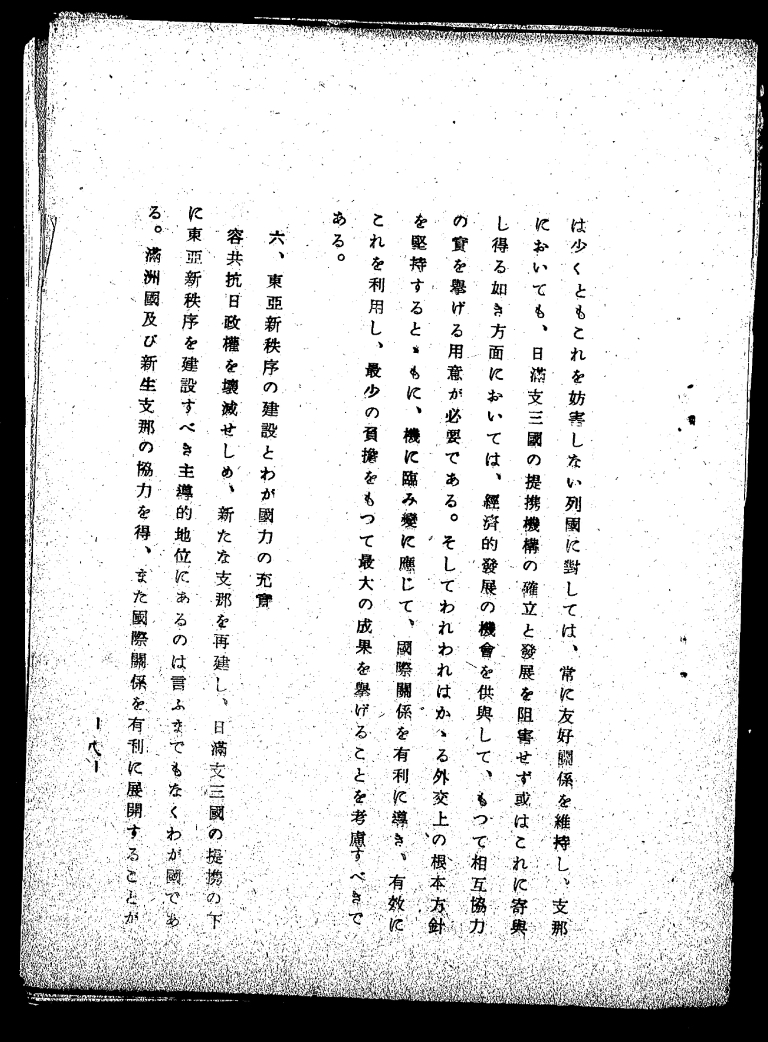 は少くともこれを妨害しない列國に對しては、常に友好關係を維持し、支那
においても、日滿支三國の提携機構の確立と發展を阻害せず或はこれに寄與
し得る如き方面においては、經濟的發展の機會を供與して、もつて相互協力
の實を擧げる用意が必要である。そしてわれわれはかゝる外交上の根本方針
を堅持するとゝもに、機に臨み變に應じて、國際關係を有利に導き、有效に
これを利用し、最少の負擔をもつて最大の成果を擧げることを考慮すべきで
ある。
六、東亞新秩序の建設とわが國力の充實
容共抗日政權を壞滅せしめ、新たな支那を再建し、日滿支三國の提携の下
に東亞新秩序を建設すべき主導的地位にあるのは言ふまでもなくわが國であ
る。滿洲國及び新生支那の協力を得、また國際關係を有利に展開することが